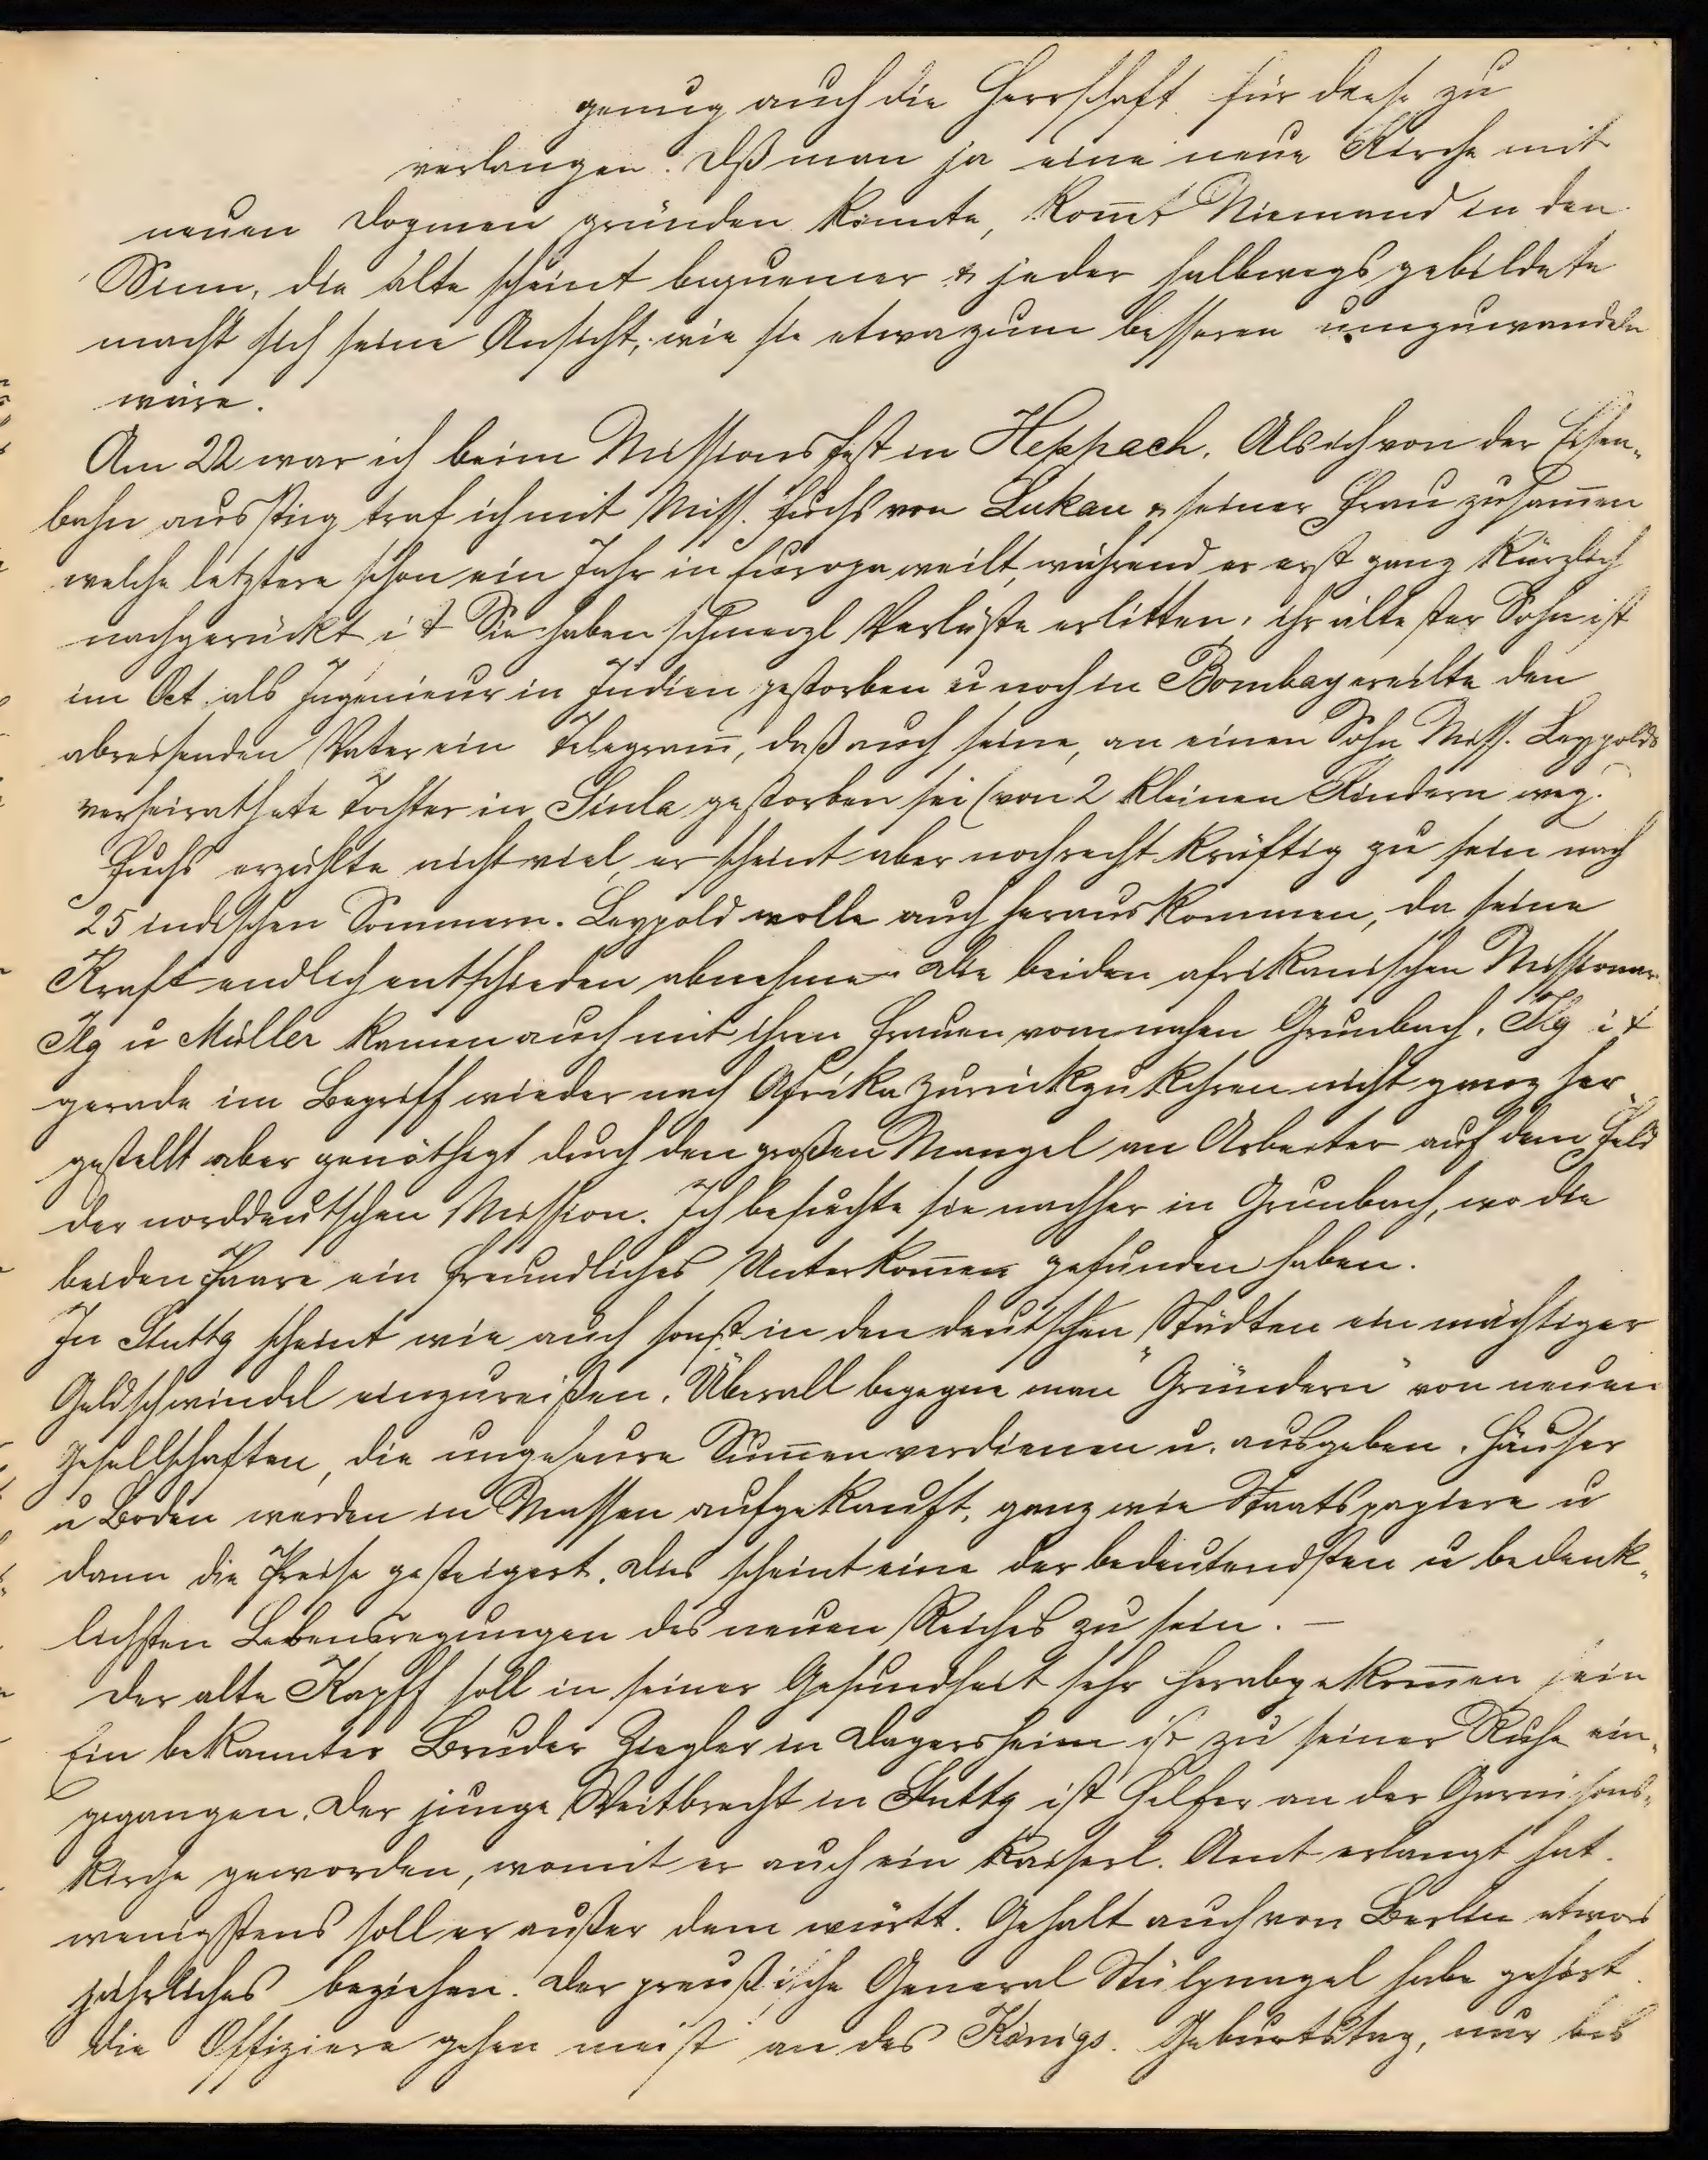 genug auch die Herrschaft für diese zu
verlangen. Dß man ja eine neue Kirche mit
neuen Dogmen gründen könnte, kom̅t Niemand in den
Sinn, die alte scheint bequemer & jeder halbwegs gebildete
macht sich seine Ansicht, wie sie etwa zum besseren umzuwandeln
wäre.
Am 22 war ich beim Missionsfest in Heppach. Als ich von der Eisen-
bahn ausstieg traf ich mit Miss. Fuchs von Lukau & seiner Frau zusam̅en
welche letztere schon ein Jahr in Europa weilt, während er erst ganz kürzlich
nachgerückt ist Sie haben schmerzl Verluste erlitten, ihr ältester Sohn ist
im Oct. als Ingenieur in Indien gestorben u noch in Bombay ereilte den
abreisenden Vater ein Telegram̅, daß auch seine, an einen Sohn Miss. Leypolds
verheirathete Tochter in Simla gestorben sei (von 2 kleinen Kindern weg.)
Fuchs erzählte nicht viel, er scheint aber noch recht kräftig zu sein nach
25 indischen Sommern. Leypold wolle auch herauskommen, da seine
Kraft endlich entschieden abnehme. Die beiden afrikanischen Missionar
Ilg u Müller kamen auch mit ihren Frauen vom nahen Grunbach. Ilg ist
gerade im Begriff wieder nach Afrika zurückzukehren nicht ganz her
gestellt aber genöthigt durch den großen Mangel an Arbeiter auf dem Feld
der norddeutschen Mission. Ich besuchte sie nachher in Grunbach, wo die
beiden Paare ein freundliches Unterkom̅en gefunden haben.
In Stuttg scheint wie auch sonst in den deutschen Städten ein mächtiger
Geldschwindel einzureißen. Überall begegne man "Gründern" von neuen
Gesellschaften, die ungeheure Sum̅en verdienen u. ausgeben. Häuser
u Boden werden in Massen aufgekauft, ganz wie Staatspapiere u
dann die Preise gesteigert. Dies scheint eine der bedeutendsten u bedenk-
lichsten Lebensregungen des neuen Reiches zu sein. —
Der alte Kapff soll in seiner Gesundheit sehr herabgekom̅en sein
Ein bekannter Bruder Ziegler in Dagersheim ist zu seiner Ruhe ein-
gegangen. Der junge Weitbrecht in Stuttg ist Helfer an der Garnisons-
kirche geworden, womit er auch ein kaiserl. Amt erlangt hat.
wenigstens soll er außer dem württ. Gehalt auch von Berlin etwas
jährliches beziehen. Der preußische General Stülpnagel habe gehört
die Offiziere gehen meist an des Königs. Geburtstag, nur bis